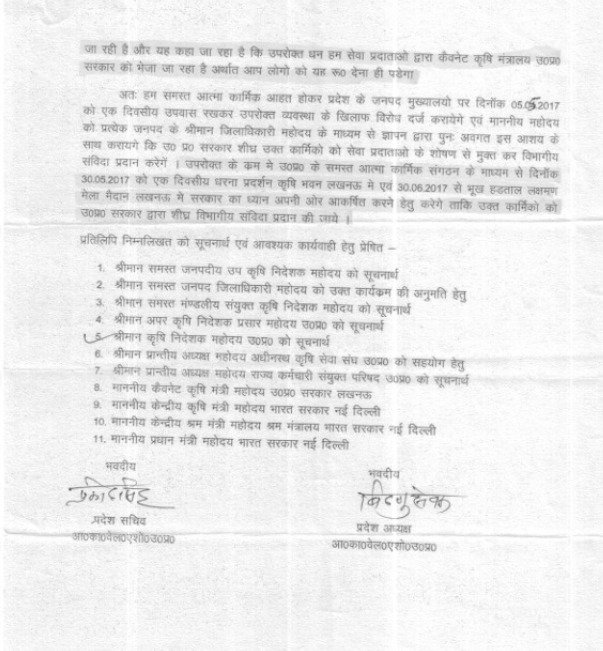 जा रही है और यह कहा जा रहा है कि उपरोक्त धन हम सेवा प्रदाताओ द्वारा कैवनेट कृषि मंत्रालय उ0प्र0
सरकार को भेजा जा रहा है अर्थात आप लोगो को यह रू0 देना ही पडेगा
अतः हम समस्त आत्मा कार्मिक आहत होकर प्रदेश के जनपद मुख्यालयो पर दिनॉक 05.05.2017
को एक दिवसीय उपवास रखकर उपरोक्त व्यवस्था के खिलाफ विरोध दर्ज करायेगे एवं माननीय महोदय
को प्रत्येक जनपद के श्रीमान जिलाधिकारी महोदय के माध्यम से ज्ञापन द्वारा पुनः अवगत इस आशय के
साथ करायगे कि उ0 प्र0 सरकार शीघ्र उक्त कार्मिको को सेवा प्रदाताओ के शोषण से मुक्त कर विभागीय
संविदा प्रदान करेगें । उपरोक्त के क्रम मे उ0प्र0 के समस्त आत्मा कार्मिक संगठन के माध्यम से दिनॉक
30.05.2017 को एक दिवसीय धरना प्रदर्शन कृषि भवन लखनऊ मे एवं 30.06.2017 से भूख हडताल लक्षमण
मेला मैदान लखनऊ मे सरकार का ध्यान अपनी ओर आकर्षित करने हेतु करेगे ताकि उक्त कार्मिको को
उ0प्र0 सरकार द्वारा शीघ्र विभागीय संविदा प्रदान की जाये ।
प्रतिलिपि निम्नलिखत को सूचनार्थ एवं आवश्यक कार्यवाही हेतु प्रेषित –
1. श्रीमान समस्त जनपदीय उप कृषि निदेशक महोदय को सूचनार्थ
2. श्रीमान समस्त जनपद जिलाधिकारी महोदय को उक्त कार्यक्रम की अनुमति हेतु
3. श्रीमान समस्त मंण्डलीय संयुक्त कृषि निदेशक महोदय को सूचनार्थ
4. श्रीमान अपर कृषि निदेशक प्रसार महोदय उ0प्र0 को सूचनार्थ
5. श्रीमान कृषि निदेशक महोदय उ0प्र0 को सूचनार्थ
6. श्रीमान प्रान्तीय अध्यक्ष महोदय अधीनस्थ कृषि सेवा संघ उ0प्र0 को सहयोग हेतु
7. श्रीमान प्रान्तीय अध्यक्ष महोदय राज्य कर्मचारी संयुक्त परिषद उ0प्र0 को सूचनार्थ
8. माननीय कैवनेट कृषि मंत्री महोदय उ0प्र0 सरकार लखनऊ
9. माननीय केन्द्रीय कृषि मंत्री महोदय भारत सरकार नई दिल्ली
10. माननीय केन्द्रीय श्रम मंत्री महोदय श्रम मंत्रालय भारत सरकार नई दिल्ली
11. माननीय प्रधान मंत्री महोदय भारत सरकार नई दिल्ली
भवदीय भवदीय
प्रदेश सचिव प्रदेश अध्यक्ष
आ0का0वेल0ए0शो0उ0प्र0 आ0का0वेल0ए0शो0उ0प्र0